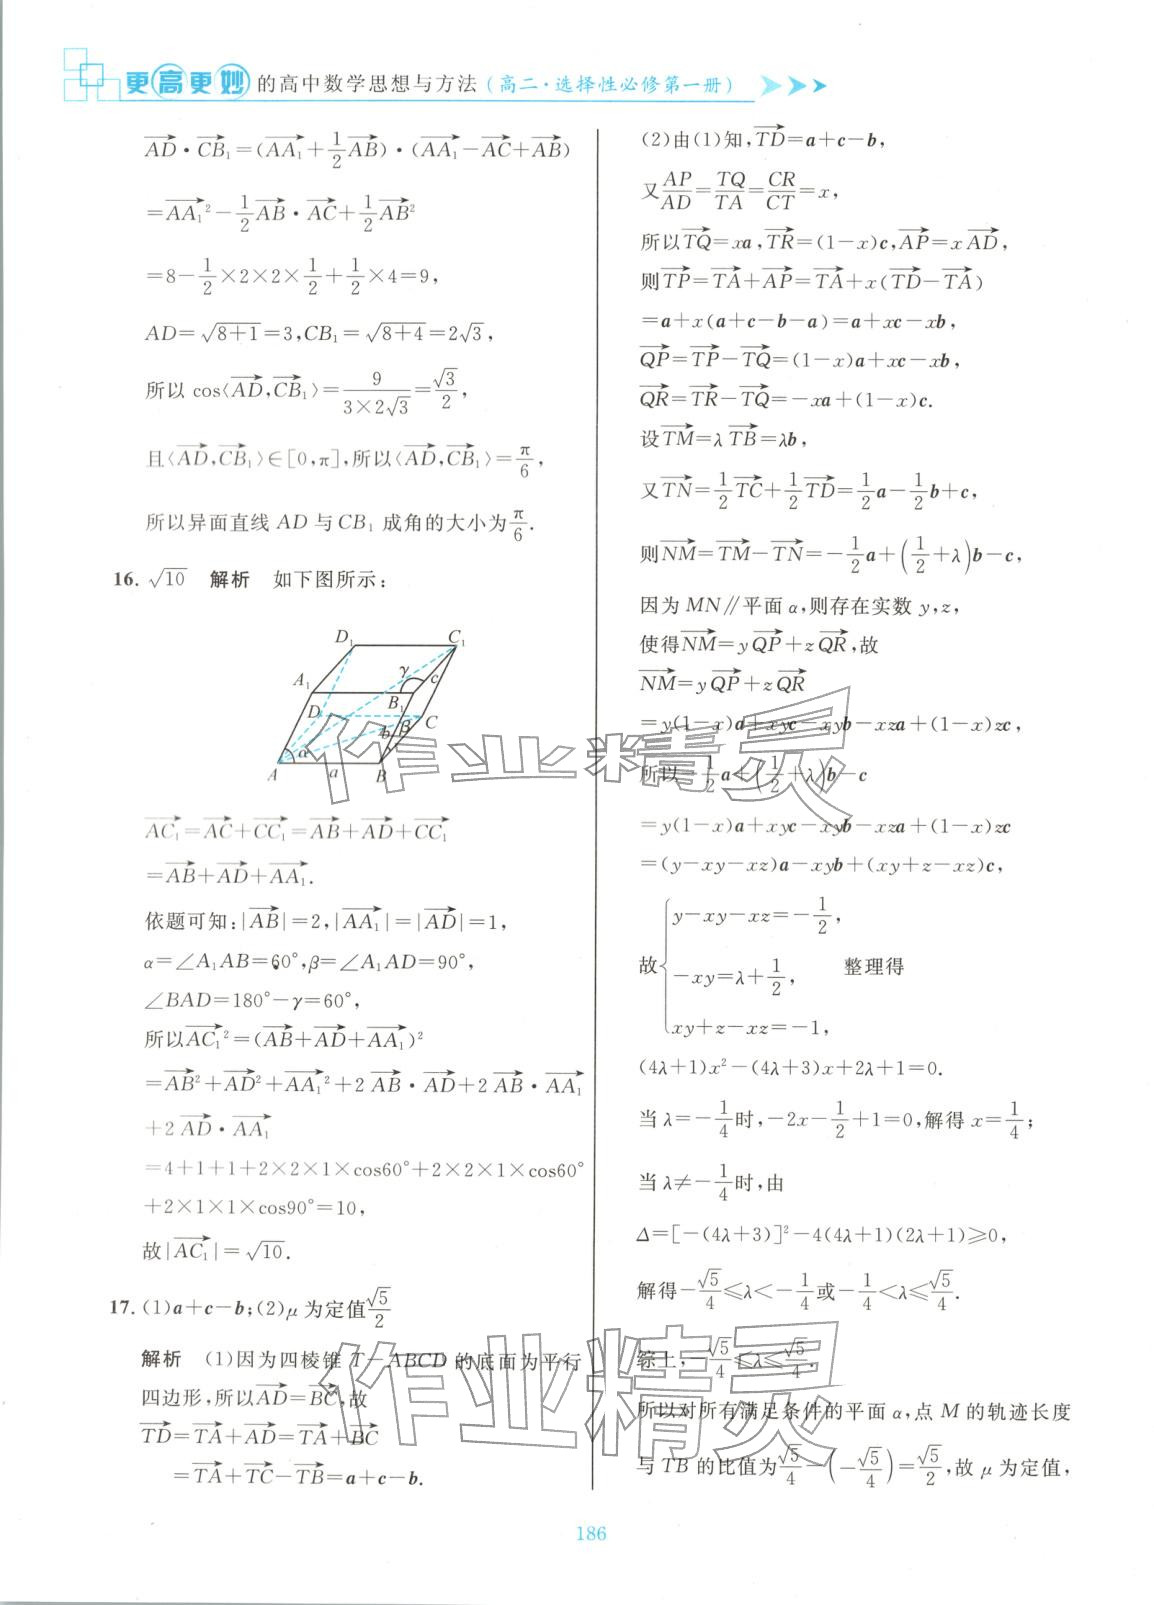 更高更妙的高中数学思想与方法(高二·选择性必修第一册)
$\overrightarrow{AD}\cdot\overrightarrow{CB_1}=(\overrightarrow{AA_1}+\frac{1}{2}\overrightarrow{AB})\cdot(\overrightarrow{AA_1}-\overrightarrow{AC}+\overrightarrow{AB})$
$=\overrightarrow{AA_1}^2-\frac{1}{2}\overrightarrow{AB}\cdot\overrightarrow{AC}+\frac{1}{2}\overrightarrow{AB}^2$
$=8-\frac{1}{2}\times2\times2\times\frac{1}{2}+\frac{1}{2}\times4=9,$
$AD=\sqrt{8+1}=3,CB_1=\sqrt{8+4}=2\sqrt{3},$
所以 $\cos\langle\overrightarrow{AD},\overrightarrow{CB_1}\rangle=\frac{9}{3\times2\sqrt{3}}=\frac{\sqrt{3}}{2},$
且$\langle\overrightarrow{AD},\overrightarrow{CB_1}\rangle\in[0,\pi]$,所以$\langle\overrightarrow{AD},\overrightarrow{CB_1}\rangle=\frac{\pi}{6},$
所以异面直线 AD 与 $CB_1$ 成角的大小为$\frac{\pi}{6}$.
16. $\sqrt{10}$ 解析 如下图所示:
$D_1$ $C_1$
$A_1$ γ c
D $B_1$
C
b β
α
A a B
$\overrightarrow{AC_1}=\overrightarrow{AC}+\overrightarrow{CC_1}=\overrightarrow{AB}+\overrightarrow{AD}+\overrightarrow{CC_1}$
$=\overrightarrow{AB}+\overrightarrow{AD}+\overrightarrow{AA_1}.$
依题可知:$|\overrightarrow{AB}|=2,|\overrightarrow{AA_1}|=|\overrightarrow{AD}|=1,$
$\alpha=\angle A_1AB=60°,\beta=\angle A_1AD=90°,$
$\angle BAD=180°-\gamma=60°,$
所以$\overrightarrow{AC_1}^2=(\overrightarrow{AB}+\overrightarrow{AD}+\overrightarrow{AA_1})^2$
$=\overrightarrow{AB}^2+\overrightarrow{AD}^2+\overrightarrow{AA_1}^2+2\overrightarrow{AB}\cdot\overrightarrow{AD}+2\overrightarrow{AB}\cdot\overrightarrow{AA_1}$
$+2\overrightarrow{AD}\cdot\overrightarrow{AA_1}$
$=4+1+1+2\times2\times1\times\cos60°+2\times2\times1\times\cos60°$
$+2\times1\times1\times\cos90°=10,$
故$|\overrightarrow{AC_1}|=\sqrt{10}.$
17. (1)a+c-b;(2)μ 为定值$\frac{\sqrt{5}}{2}$
解析 (1)因为四棱锥 T-ABCD 的底面为平行
四边形,所以$\overrightarrow{AD}=\overrightarrow{BC}$,故
$\overrightarrow{TD}=\overrightarrow{TA}+\overrightarrow{AD}=\overrightarrow{TA}+\overrightarrow{BC}$
$=\overrightarrow{TA}+\overrightarrow{TC}-\overrightarrow{TB}=a+c-b.$
(2)由(1)知,$\overrightarrow{TD}=a+c-b,$
又$\frac{AP}{AD}=\frac{TQ}{TA}=\frac{CR}{CT}=x,$
所以$\overrightarrow{TQ}=xa,\overrightarrow{TR}=(1-x)c,\overrightarrow{AP}=x\overrightarrow{AD},$
则$\overrightarrow{TP}=\overrightarrow{TA}+\overrightarrow{AP}=\overrightarrow{TA}+x(\overrightarrow{TD}-\overrightarrow{TA})$
$=a+x(a+c-b-a)=a+xc-xb,$
$\overrightarrow{QP}=\overrightarrow{TP}-\overrightarrow{TQ}=(1-x)a+xc-xb,$
$\overrightarrow{QR}=\overrightarrow{TR}-\overrightarrow{TQ}=-xa+(1-x)c.$
设$\overrightarrow{TM}=\lambda\overrightarrow{TB}=\lambda b,$
又$\overrightarrow{TN}=\frac{1}{2}\overrightarrow{TC}+\frac{1}{2}\overrightarrow{TD}=\frac{1}{2}a-\frac{1}{2}b+c,$
则$\overrightarrow{NM}=\overrightarrow{TM}-\overrightarrow{TN}=-\frac{1}{2}a+\left(\frac{1}{2}+\lambda\right)b-c,$
因为 MN∥平面 α,则存在实数 y,z,
使得$\overrightarrow{NM}=y\overrightarrow{QP}+z\overrightarrow{QR}$,故
$\overrightarrow{NM}=y\overrightarrow{QP}+z\overrightarrow{QR}$
$=y(1-x)a+xyc-xyb-xza+(1-x)zc,$
所以$-\frac{1}{2}a+\left(\frac{1}{2}+\lambda\right)b-c$
$=y(1-x)a+xyc-xyb-xza+(1-x)zc$
$=(y-xy-xz)a-xyb+(xy+z-xz)c,$
故$\begin{cases}y-xy-xz=-\frac{1}{2},\\-xy=\lambda+\frac{1}{2},\\xy+z-xz=-1,\end{cases}$ 整理得
$(4\lambda+1)x^2-(4\lambda+3)x+2\lambda+1=0.$
当 $\lambda=-\frac{1}{4}$时,$-2x-\frac{1}{2}+1=0$,解得 $x=\frac{1}{4};$
当 $\lambda\neq-\frac{1}{4}$时,由
$\Delta=[-(4\lambda+3)]^2-4(4\lambda+1)(2\lambda+1)\geqslant0,$
解得$-\frac{\sqrt{5}}{4}\leqslant\lambda<-\frac{1}{4}$或$-\frac{1}{4}<\lambda\leqslant\frac{\sqrt{5}}{4}.$
综上,$-\frac{\sqrt{5}}{4}\leqslant\lambda\leqslant\frac{\sqrt{5}}{4}.$
所以对所有满足条件的平面 α,点 M 的轨迹长度
与 TB 的比值为$\frac{\sqrt{5}}{4}-\left(-\frac{\sqrt{5}}{4}\right)=\frac{\sqrt{5}}{2}$,故 μ 为定值,
186
作业精灵
作业精灵